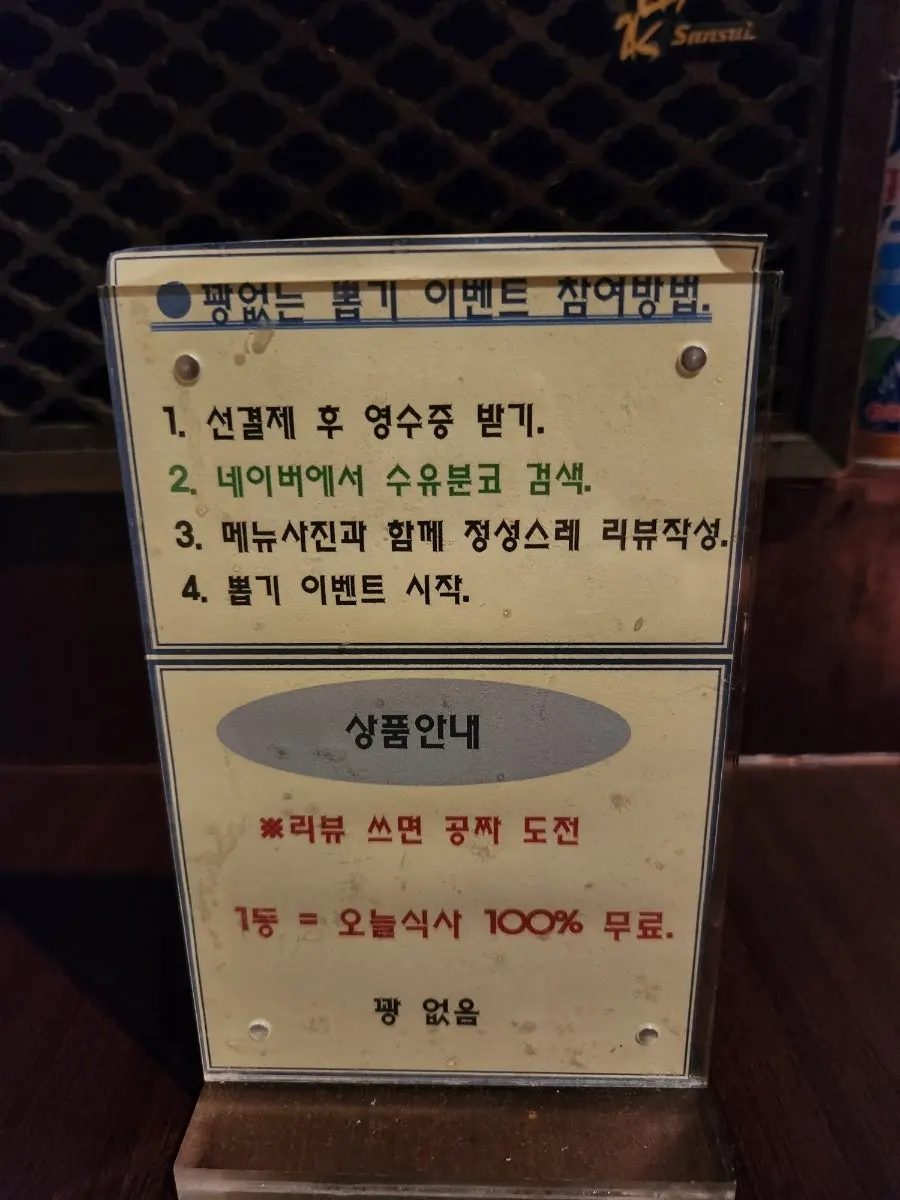 Sansui
● 꽝없는 뽑기 이벤트 참여방법.
1. 선결제 후 영수증 받기.
2. 네이버에서 수유분코 검색.
3. 메뉴사진과 함께 정성스레 리뷰작성.
4. 뽑기 이벤트 시작.
상품안내
※리뷰 쓰면 공짜 도전
1등 = 오늘식사 100% 무료.
꽝 없음